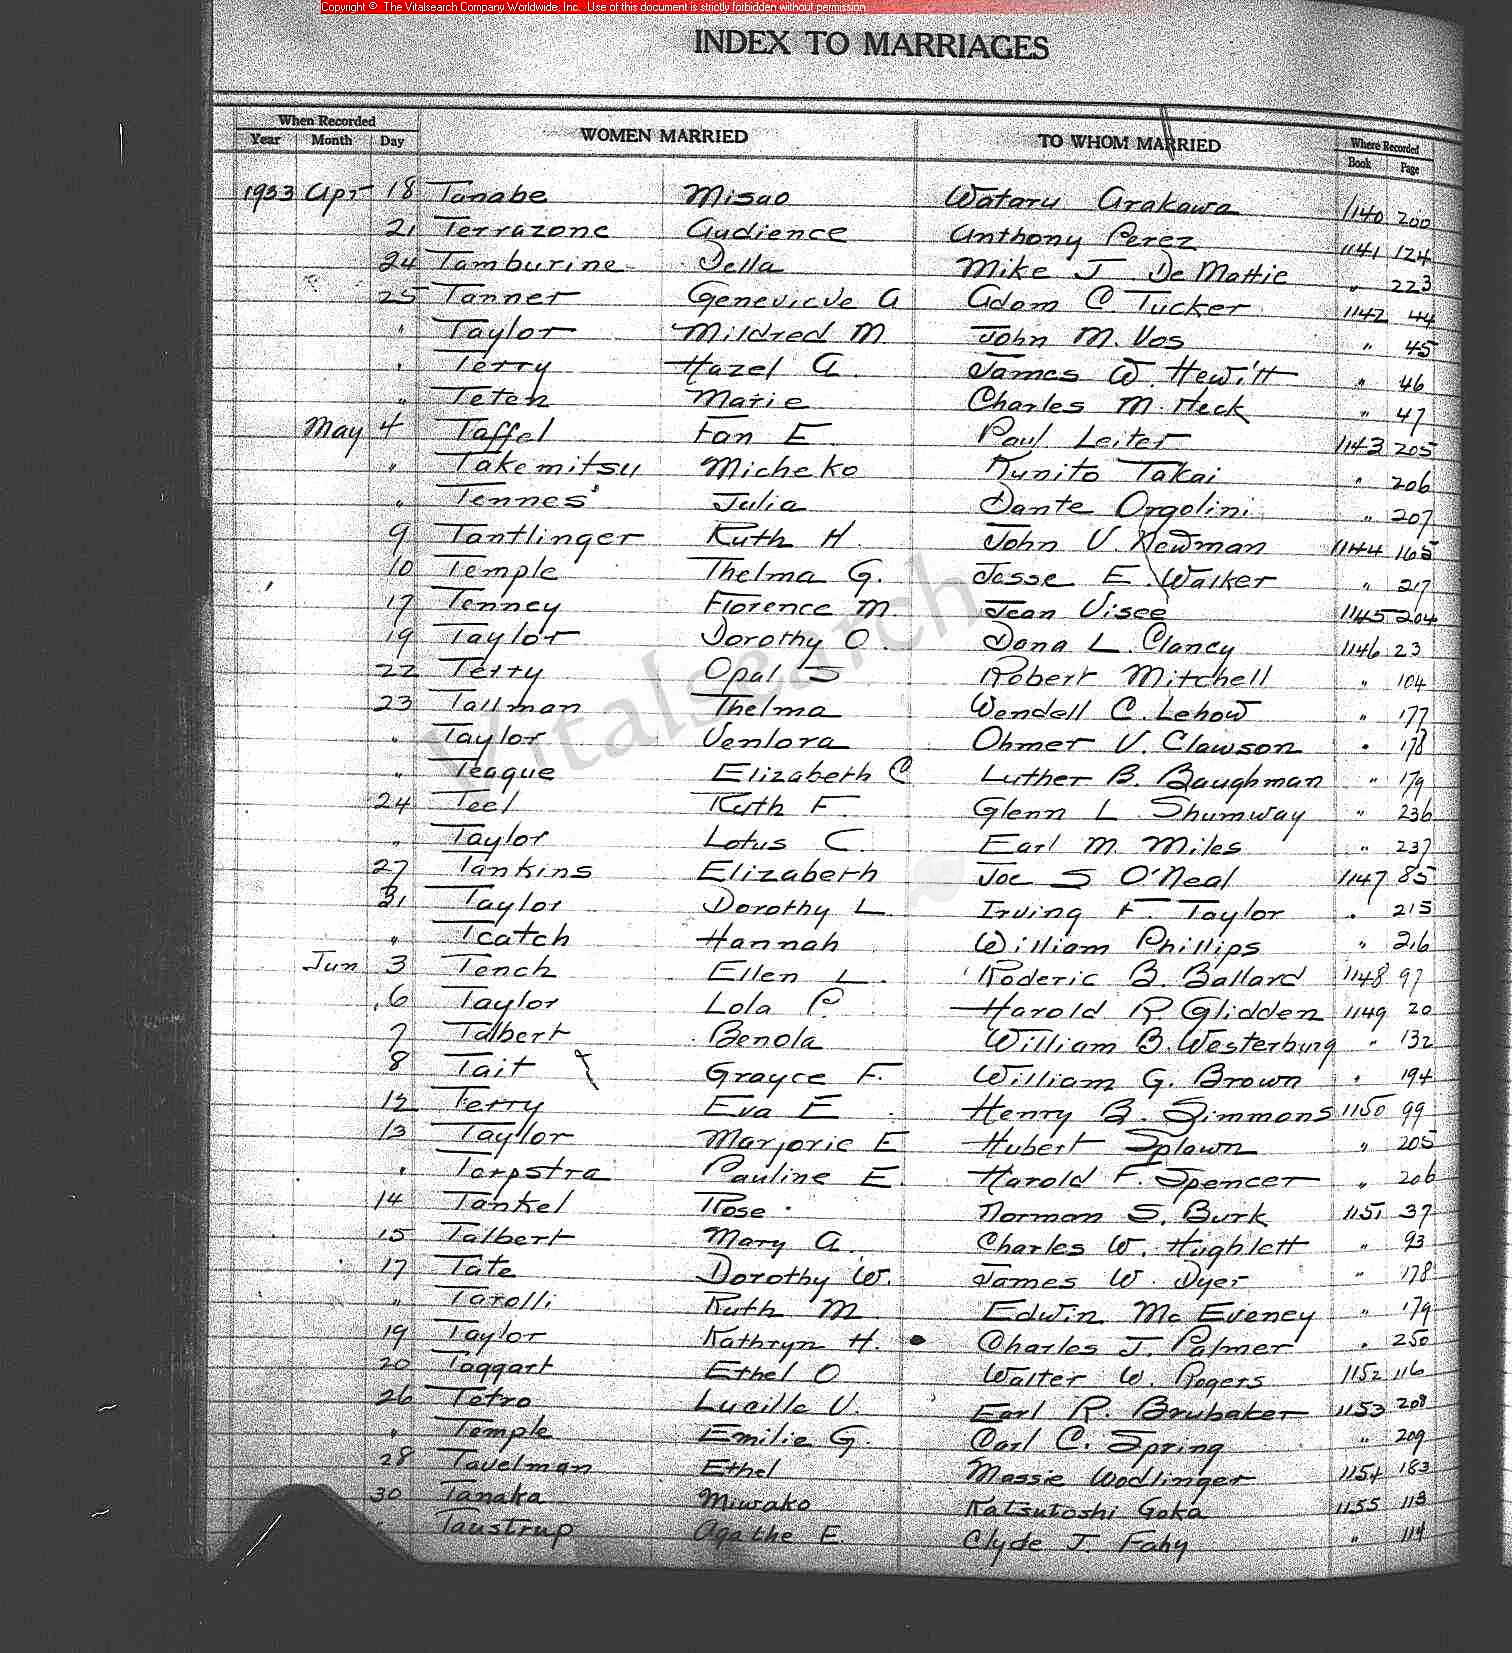 Copyright © The Vitalsearch Company Worldwide, Inc. Use of this document is strictly forbidden without permission
INDEX TO MARRIAGES
When Recorded WOMEN MARRIED TO WHOM MARRIED Where Recorded
Year Month Day Book Page
1933 Apr 18 Tanabe Misao Wataru Arakawa 1140 200
21 Terrazone Audience Anthony Perez 1141 124
24 Tamburine Della Mike J De Mattie " 223
25 Tanner Genevieve A Adam C. Tucker 1142 44
" Taylor Mildred M. John M. Vos " 45
" Terry Hazel A. James W. Hewitt " 46
" Teten Marie Charles M. Heck " 47
May 4 Taffel Fan E. Paul Leiter 1143 205
" Takemitsu Micheko Kunito Takai " 206
" Tennes Julia Dante Orgolini " 207
9 Tantlinger Ruth H. John V. Newman 1144 165
10 Temple Thelma G. Jesse E. Walker " 217
17 Tenney Florence M Jean Visce 1145 204
19 Taylor Dorothy O. Dona L. Clancy 1146 23
22 Terry Opal S Robert Mitchell " 104
23 Tallman Thelma Wendell C. Lehow " 177
" Taylor Venlora Ohmer V. Clawson " 178
" Teague Elizabeth C Luther B. Baughman " 179
24 Teel Ruth F. Glenn L Shumway " 236
" Taylor Lotus C. Earl M. Miles " 237
27 Tankins Elizabeth Joe S O'Neal 1147 85
31 Taylor Dorothy L Irving F. Taylor " 215
" Tcatch Hannah William Phillips " 216
Jun 3 Tench Ellen L. Roderic B. Ballard 1148 97
6 Taylor Lola P. Harold R Glidden 1149 20
7 Talbert Benola William B. Westerburg " 132
8 Tait Grayce F. William G. Brown " 194
12 Terry Eva E Henry B. Simmons 1150 99
13 Taylor Marjorie E Hubert Splawn " 205
" Terpstra Pauline E. Harold F. Spencer " 206
14 Tankel Rose Norman S. Burk 1151 37
15 Talbert Mary A. Charles W. Hughlett " 93
17 Tate Dorothy W. James W. Dyer " 178
" Tarolli Ruth M Edwin Mc Eveney " 179
19 Taylor Kathryn H. Charles J. Palmer " 250
20 Taggart Ethel O Walter W. Rogers 1152 116
26 Tetro Lucille V. Earl R. Brubaker 1153 208
" Temple Emilie G. Carl C. Spring " 209
28 Tavelman Ethel Massie Wodlinger 1154 183
30 Tanaka Miwako Katsutoshi Goka 1155 113
" Taustrup Agathe E. Clyde J. Fahy " 114
Vitalsearch